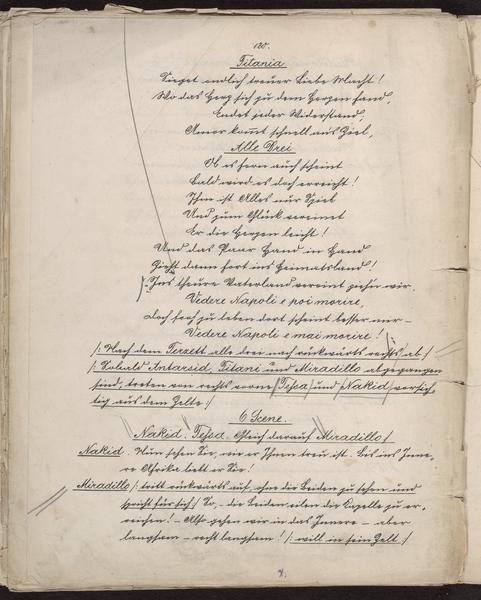 120.
Titania
Sieget endlich treuer Liebe Macht!
Wo das Herz sich zu dem Herzen fand,
Endet jeder Widerstand,
Amor kommt schnell ans Ziel,
Alle Drei
Ob es fern auch scheint
Bald wird es doch erreicht!
Ihm ist Alles nur Spiel
Und zum Glück vereinet
Er die Herzen leicht!
Und das Paar Hand in Hand
Zieht dann fort ins Heimatsland!
Ins theure Vaterland vereint ziehn wir.
Vedere Napoli e poi morire,
Doch froh zu leben dort scheint besser mir –
Vedere Napoli e mai morire!
/: Nach dem Terzett alle drei nach rückwärts rechts ab :/
/: Sobald Antarsid, Titani und Miradillo abgegangen
sind, treten von rechts vorne /Tessa/ und /Nakid/ vorsich
tig aus dem Zelte :/
6 Scene.
Nakid. Tessa. Gleich darauf Miradillo /
Nakid. Nun sehen Sie, wie er Ihnen treu ist. Bis ins Inne-
re Afrika
Miradillo /: tritt rückwärts auf, ohne die Beiden zu sehen und
spricht für sich :/ So, – die Beiden eilen die Kapelle zu er-
reichen! – Also gehen wir in das Innere – aber
langsam – recht langsam! /: will in sein Zelt :/